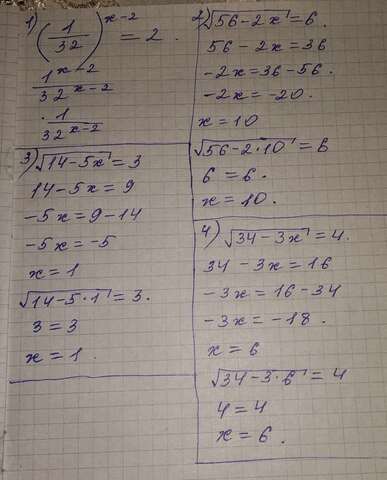 1) (1/32)^(x-2) = 2.
1^(x-2)/32^(x-2)
1/32^(x-2)
2) √(56-2x) = 6.
56 - 2x = 36
-2x = 36-56.
-2x = -20.
x = 10
√(56-2·10) = 6
6 = 6.
x = 10.
3) √(14-5x) = 3
14-5x = 9
-5x = 9-14
-5x = -5
x = 1
√(14-5·1) = 3.
3 = 3
x = 1.
4) √(34-3x) = 4.
34 - 3x = 16
-3x = 16-34
-3x = -18.
x = 6
√(34-3·6) = 4
4 = 4
x = 6.